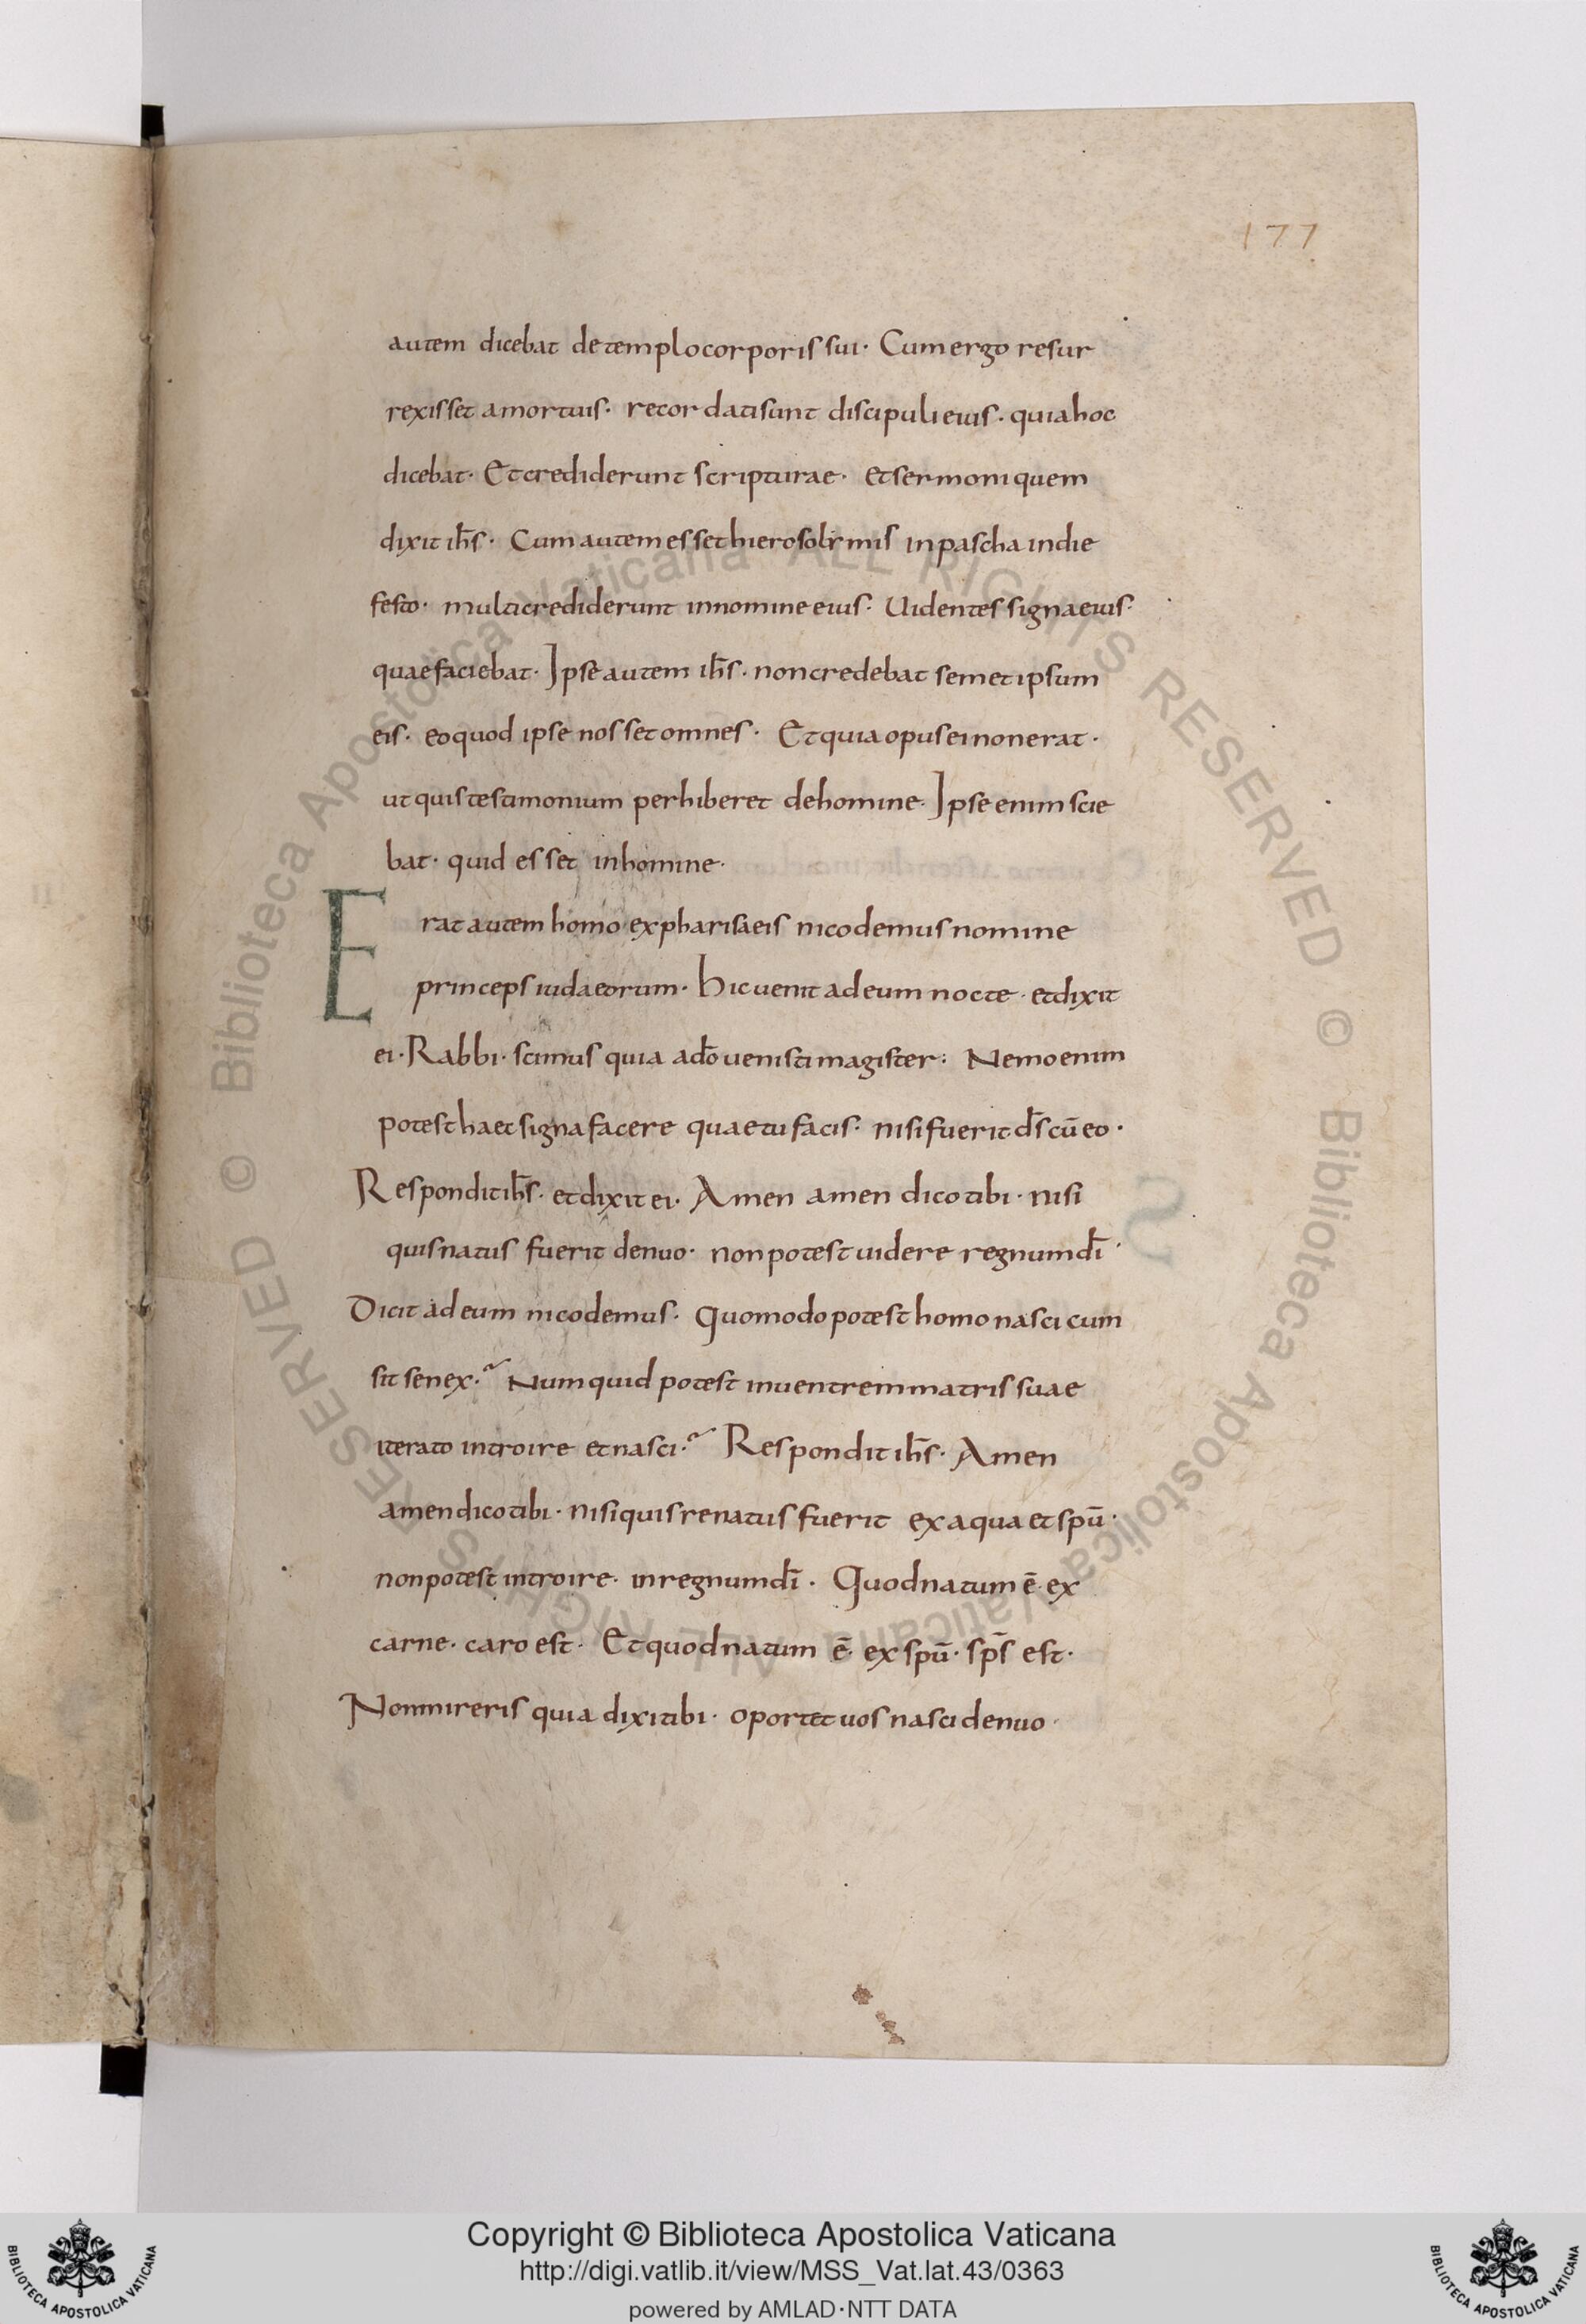 177
autem dicebat de templo corporis sui · Cum ergo resur
rexisset a mortuis · recordati sunt discipuli eius · quia hoc
dicebat · Et crediderunt scripturae · et sermoni quem
dixit ih̅s · Cum autem esset hierosolymis in pascha in die
festo · multi crediderunt in nomine eius · Uidentes signa eius ·
quae faciebat · Ipse autem ih̅s · non credebat semet ipsum
eis · eo quod ipse nosset omnes · Et quia opus ei non erat ·
ut quis testimonium perhiberet de homine · Ipse enim scie
bat · quid esset in homine ·
Erat autem homo ex pharisaeis nicodemus nomine
princeps iudaeorum · Hic uenit ad eum nocte · et dixit
ei · Rabbi · scimus quia a do̅ uenisti magister : Nemo enim
potest haec signa facere quae tu facis · nisi fuerit ds̅ cu̅ eo ·
Respondit ih̅s · et dixit ei · Amen amen dico tibi · nisi
quis natus fuerit denuo · non potest uidere regnum di̅ ·
Dicit ad eum nicodemus · Quomodo potest homo nasci cum
sit senex ·~ Numquid potest in uentrem matris suae
iterato introire et nasci ·~ Respondit ih̅s · Amen
amen dico tibi · nisi quis renatus fuerit ex aqua et spu̅ ·
non potest introire · in regnum di̅ · Quod natum e̅ · ex
carne · caro est · Et quod natum e̅ · ex spu̅ · sps̅ est ·
Non mireris quia dixi tibi · oportet uos nasci denuo ·
© Biblioteca Apostolica Vaticana ALL RIGHTS RESERVED © Biblioteca Apostolica Vaticana ALL RIGHTS RESERVED
Copyright © Biblioteca Apostolica Vaticana
http://digi.vatlib.it/view/MSS_Vat.lat.43/0363
powered by AMLAD·NTT DATA
BIBLIOTECA APOSTOLICA VATICANA
BIBLIOTECA APOSTOLICA VATICANA